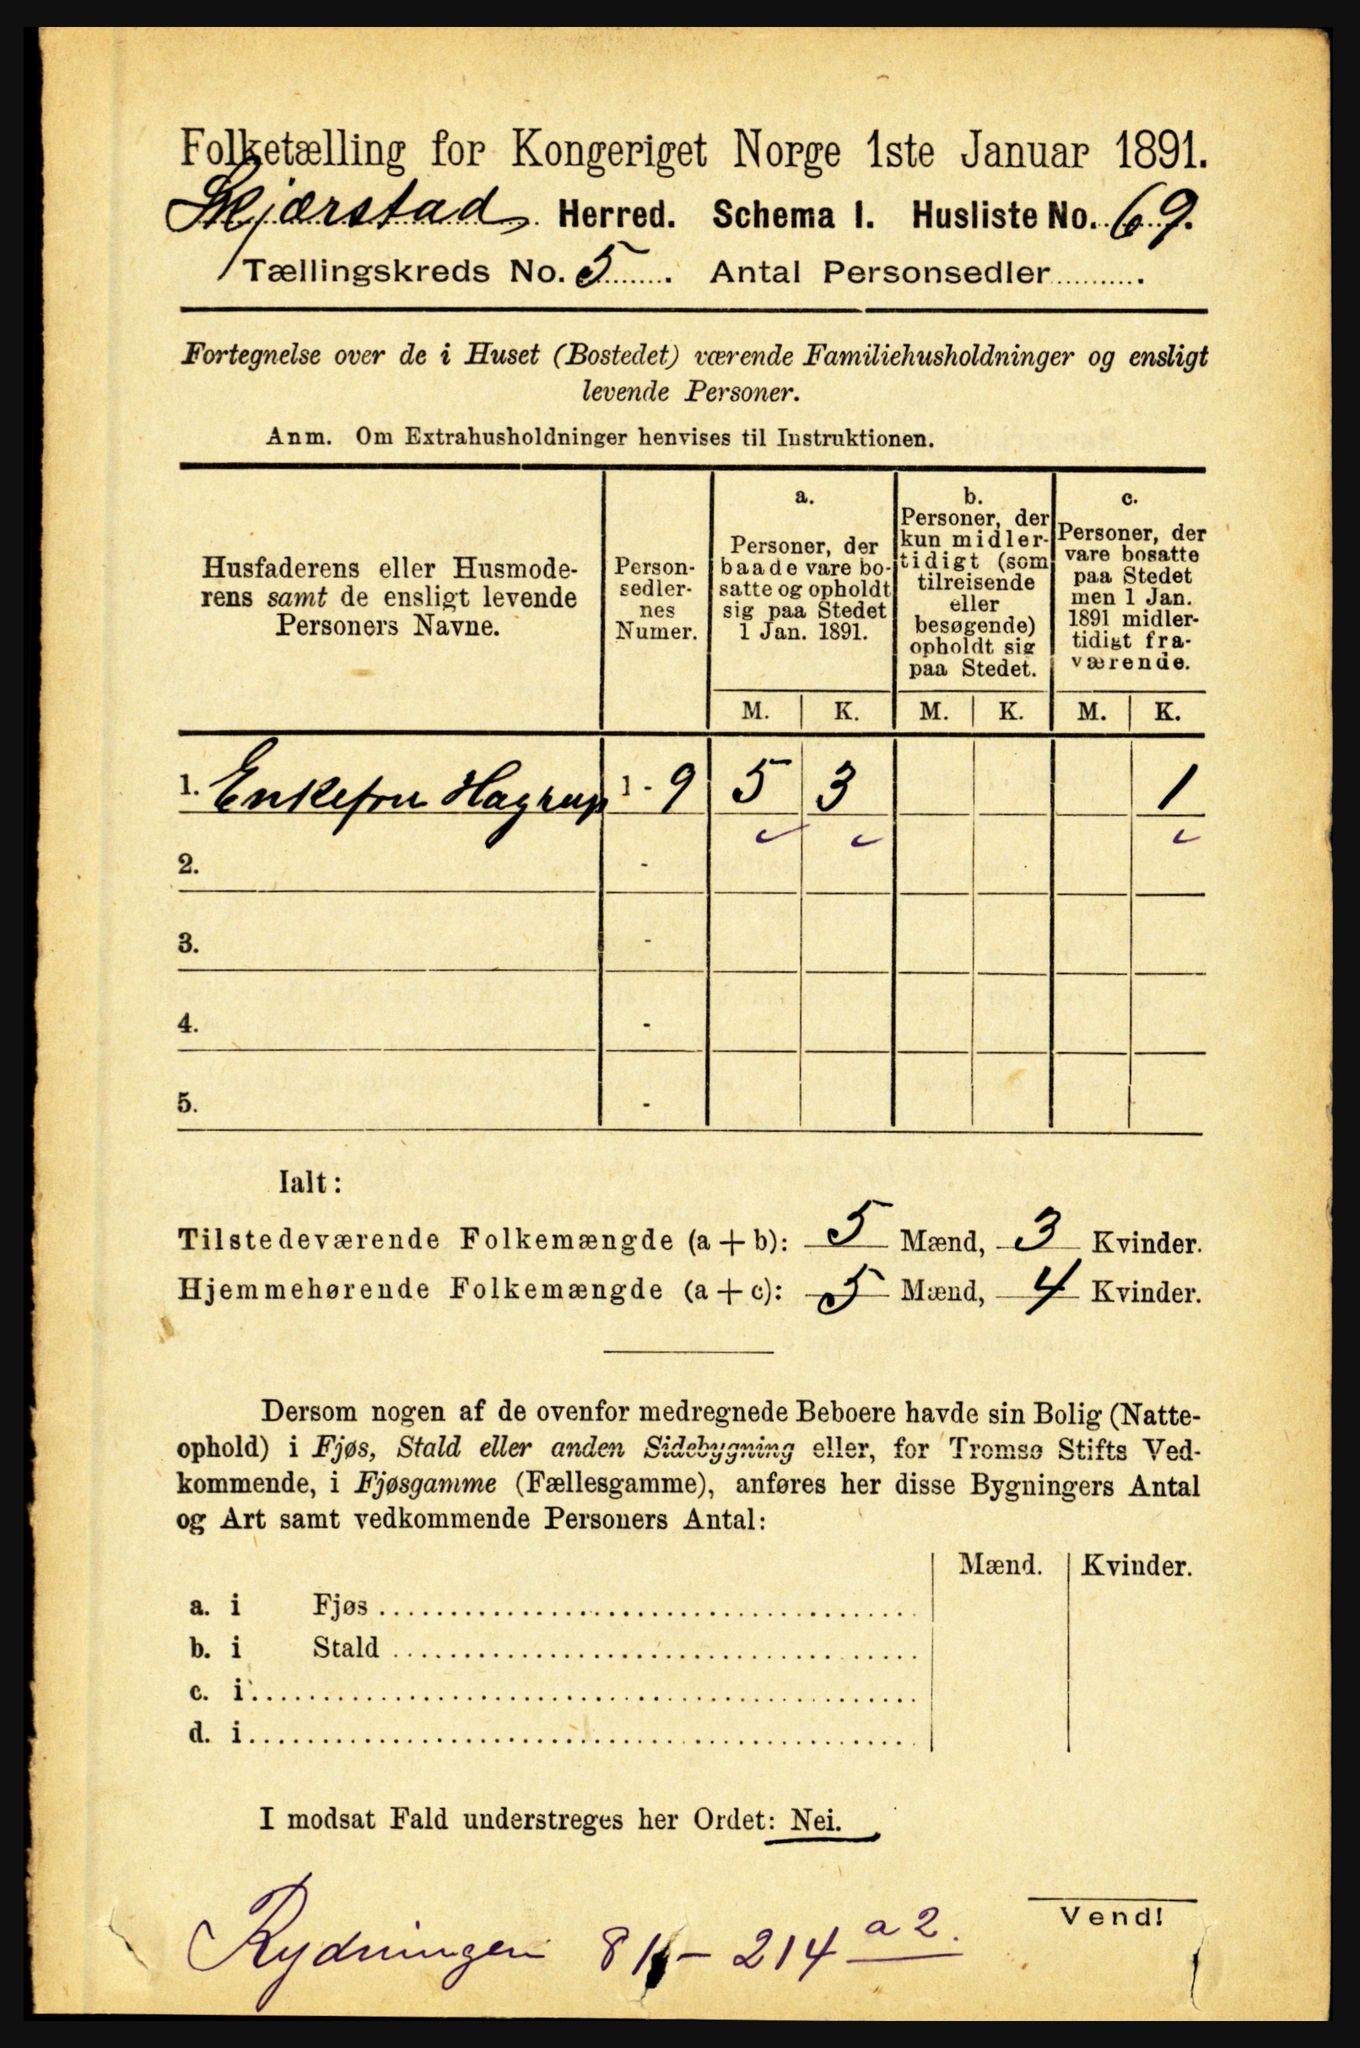 Folketælling for Kongeriget Norge 1ste Januar 1891.
Skjærstad Herred. Schema I. Husliste No. 69.
Tællingskreds No. 5. Antal Personsedler
Fortegnelse over de i Huset (Bostedet) værende Familiehusholdninger og ensligt
levende Personer.
Anm. Om Extrahusholdninger henvises til Instruktionen.
Husfaderens eller Husmode-
rens samt de ensligt levende
Personers Navne.
Person-
sedler-
nes
Numer.
a.
Personer, der
baade vare bo-
satte og opholdt
sig paa Stedet
1 Jan. 1891.
b.
Personer, der
kun midler-
tidigt (som
tilreisende
eller
besøgende)
opholdt sig
paa Stedet.
c.
Personer, der
vare bosatte
paa Stedet
men 1 Jan.
1891 midler-
tidigt fra-
værende.
M. K. M. K. M. K.
1. Enkefru Hagrup 1 - 9 5 3 1
2. -
3. -
4. -
5. -
Ialt:
Tilstedeværende Folkemængde (a + b): 5 Mænd, 3 Kvinder.
Hjemmehørende Folkemængde (a + c): 5 Mænd, 4 Kvinder.
Dersom nogen af de ovenfor medregnede Beboere havde sin Bolig (Natte-
ophold) i Fjøs, Stald eller anden Sidebygning eller, for Tromsø Stifts Ved-
kommende, i Fjøsgamme (Fællesgamme), anføres her disse Bygningers Antal
og Art samt vedkommende Personers Antal:
Mænd. Kvinder.
a. i Fjøs
b. i Stald
c. i
d. i
I modsat Fald understreges her Ordet: Nei.
Vend!
Rydningen 81 - 214 a 2.